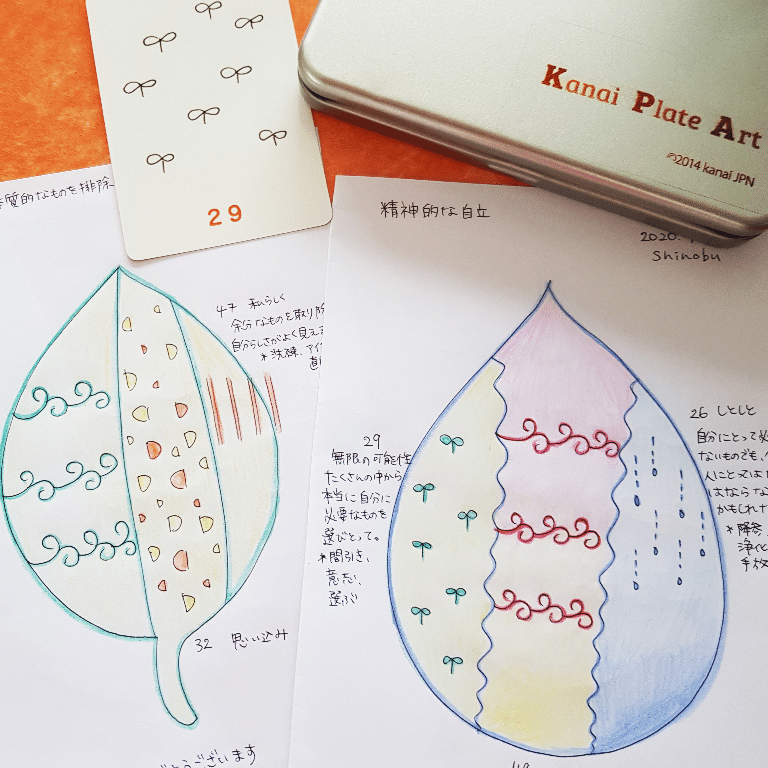 29
Kanai Plate Art
©2014 kanai JPN
質的なものを排除
47 私らしく
余分なものを取り除
自分らしさがよく見え
*洗練、アイ
32 思い込み
ございます
精神的な自立
2020.
Shinobu
29
無限の可能性
たくさんの中から
本当に自分に
必要なものを
選びとって。
*間引き、
意志、
選ぶ
26 しとしと
自分にとって必
ないものでも、
人にとっては
はならな
かもしれ
*降参、
浄化
手放